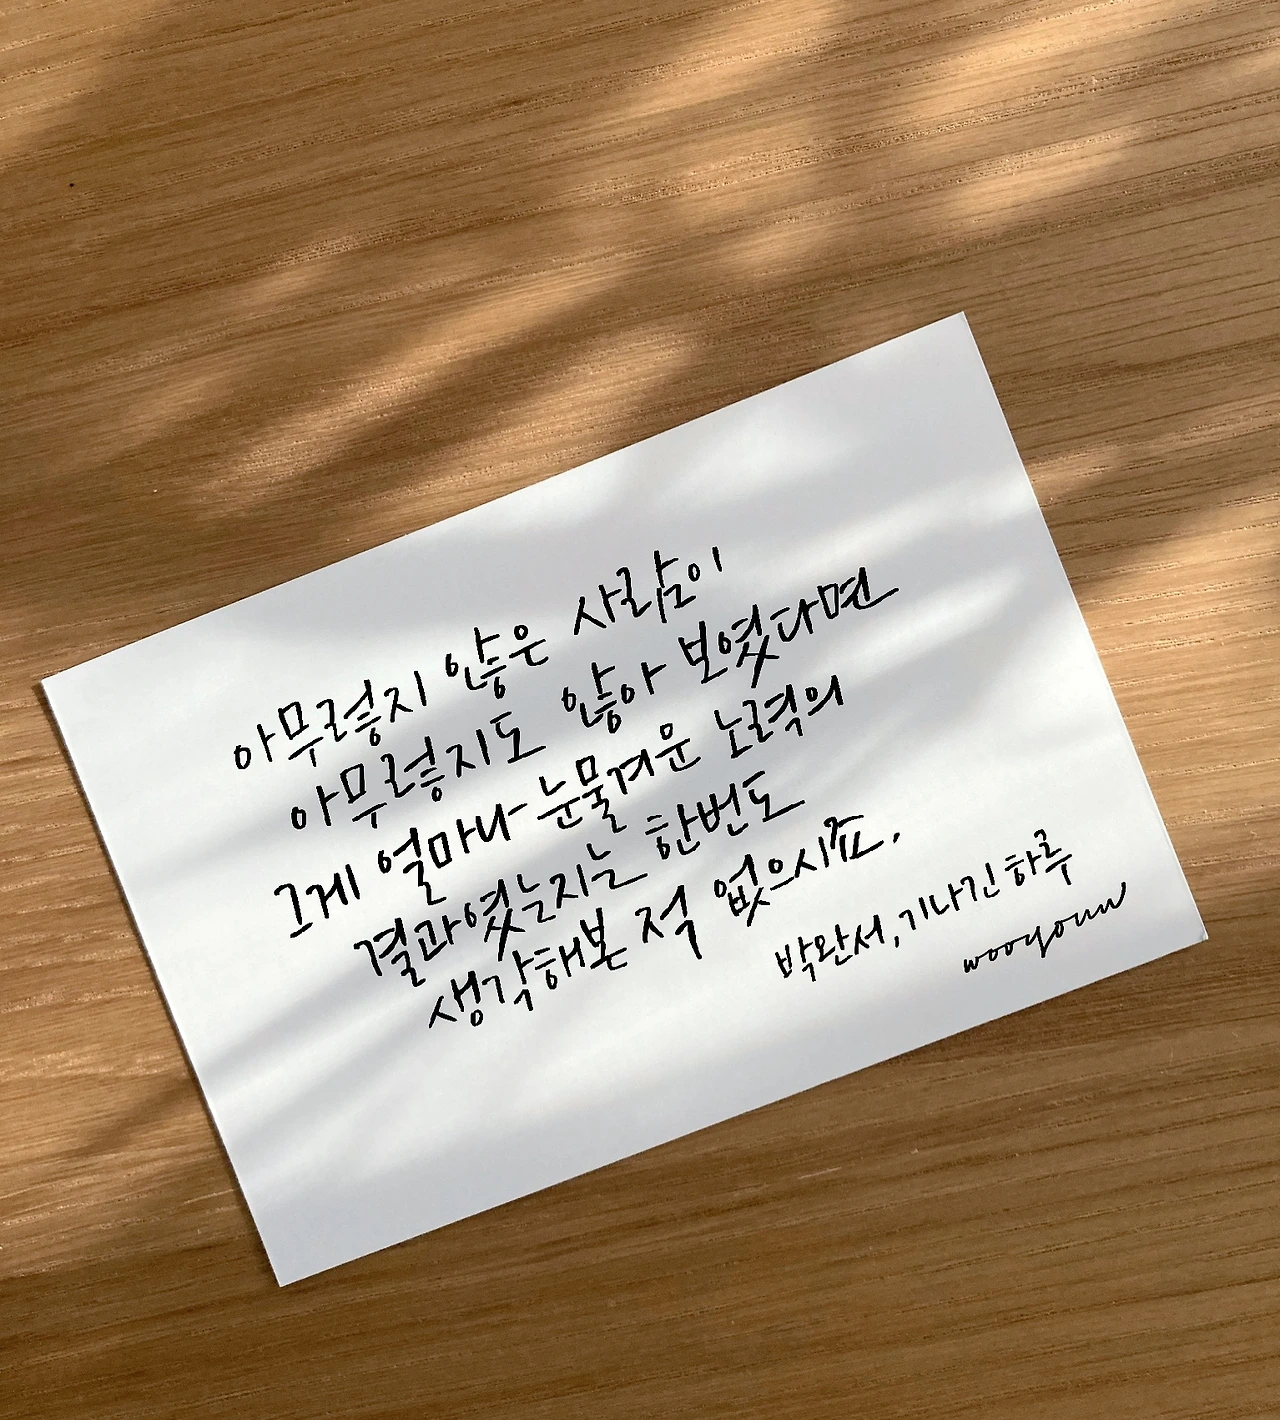 아무렇지 않은 사람이
아무렇지도 않아 보였다면
그게 얼마나 눈물겨운 노력의
결과였는지는 한번도
생각해본 적 없으시죠.
박완서, 기나긴 하루
wooyoun